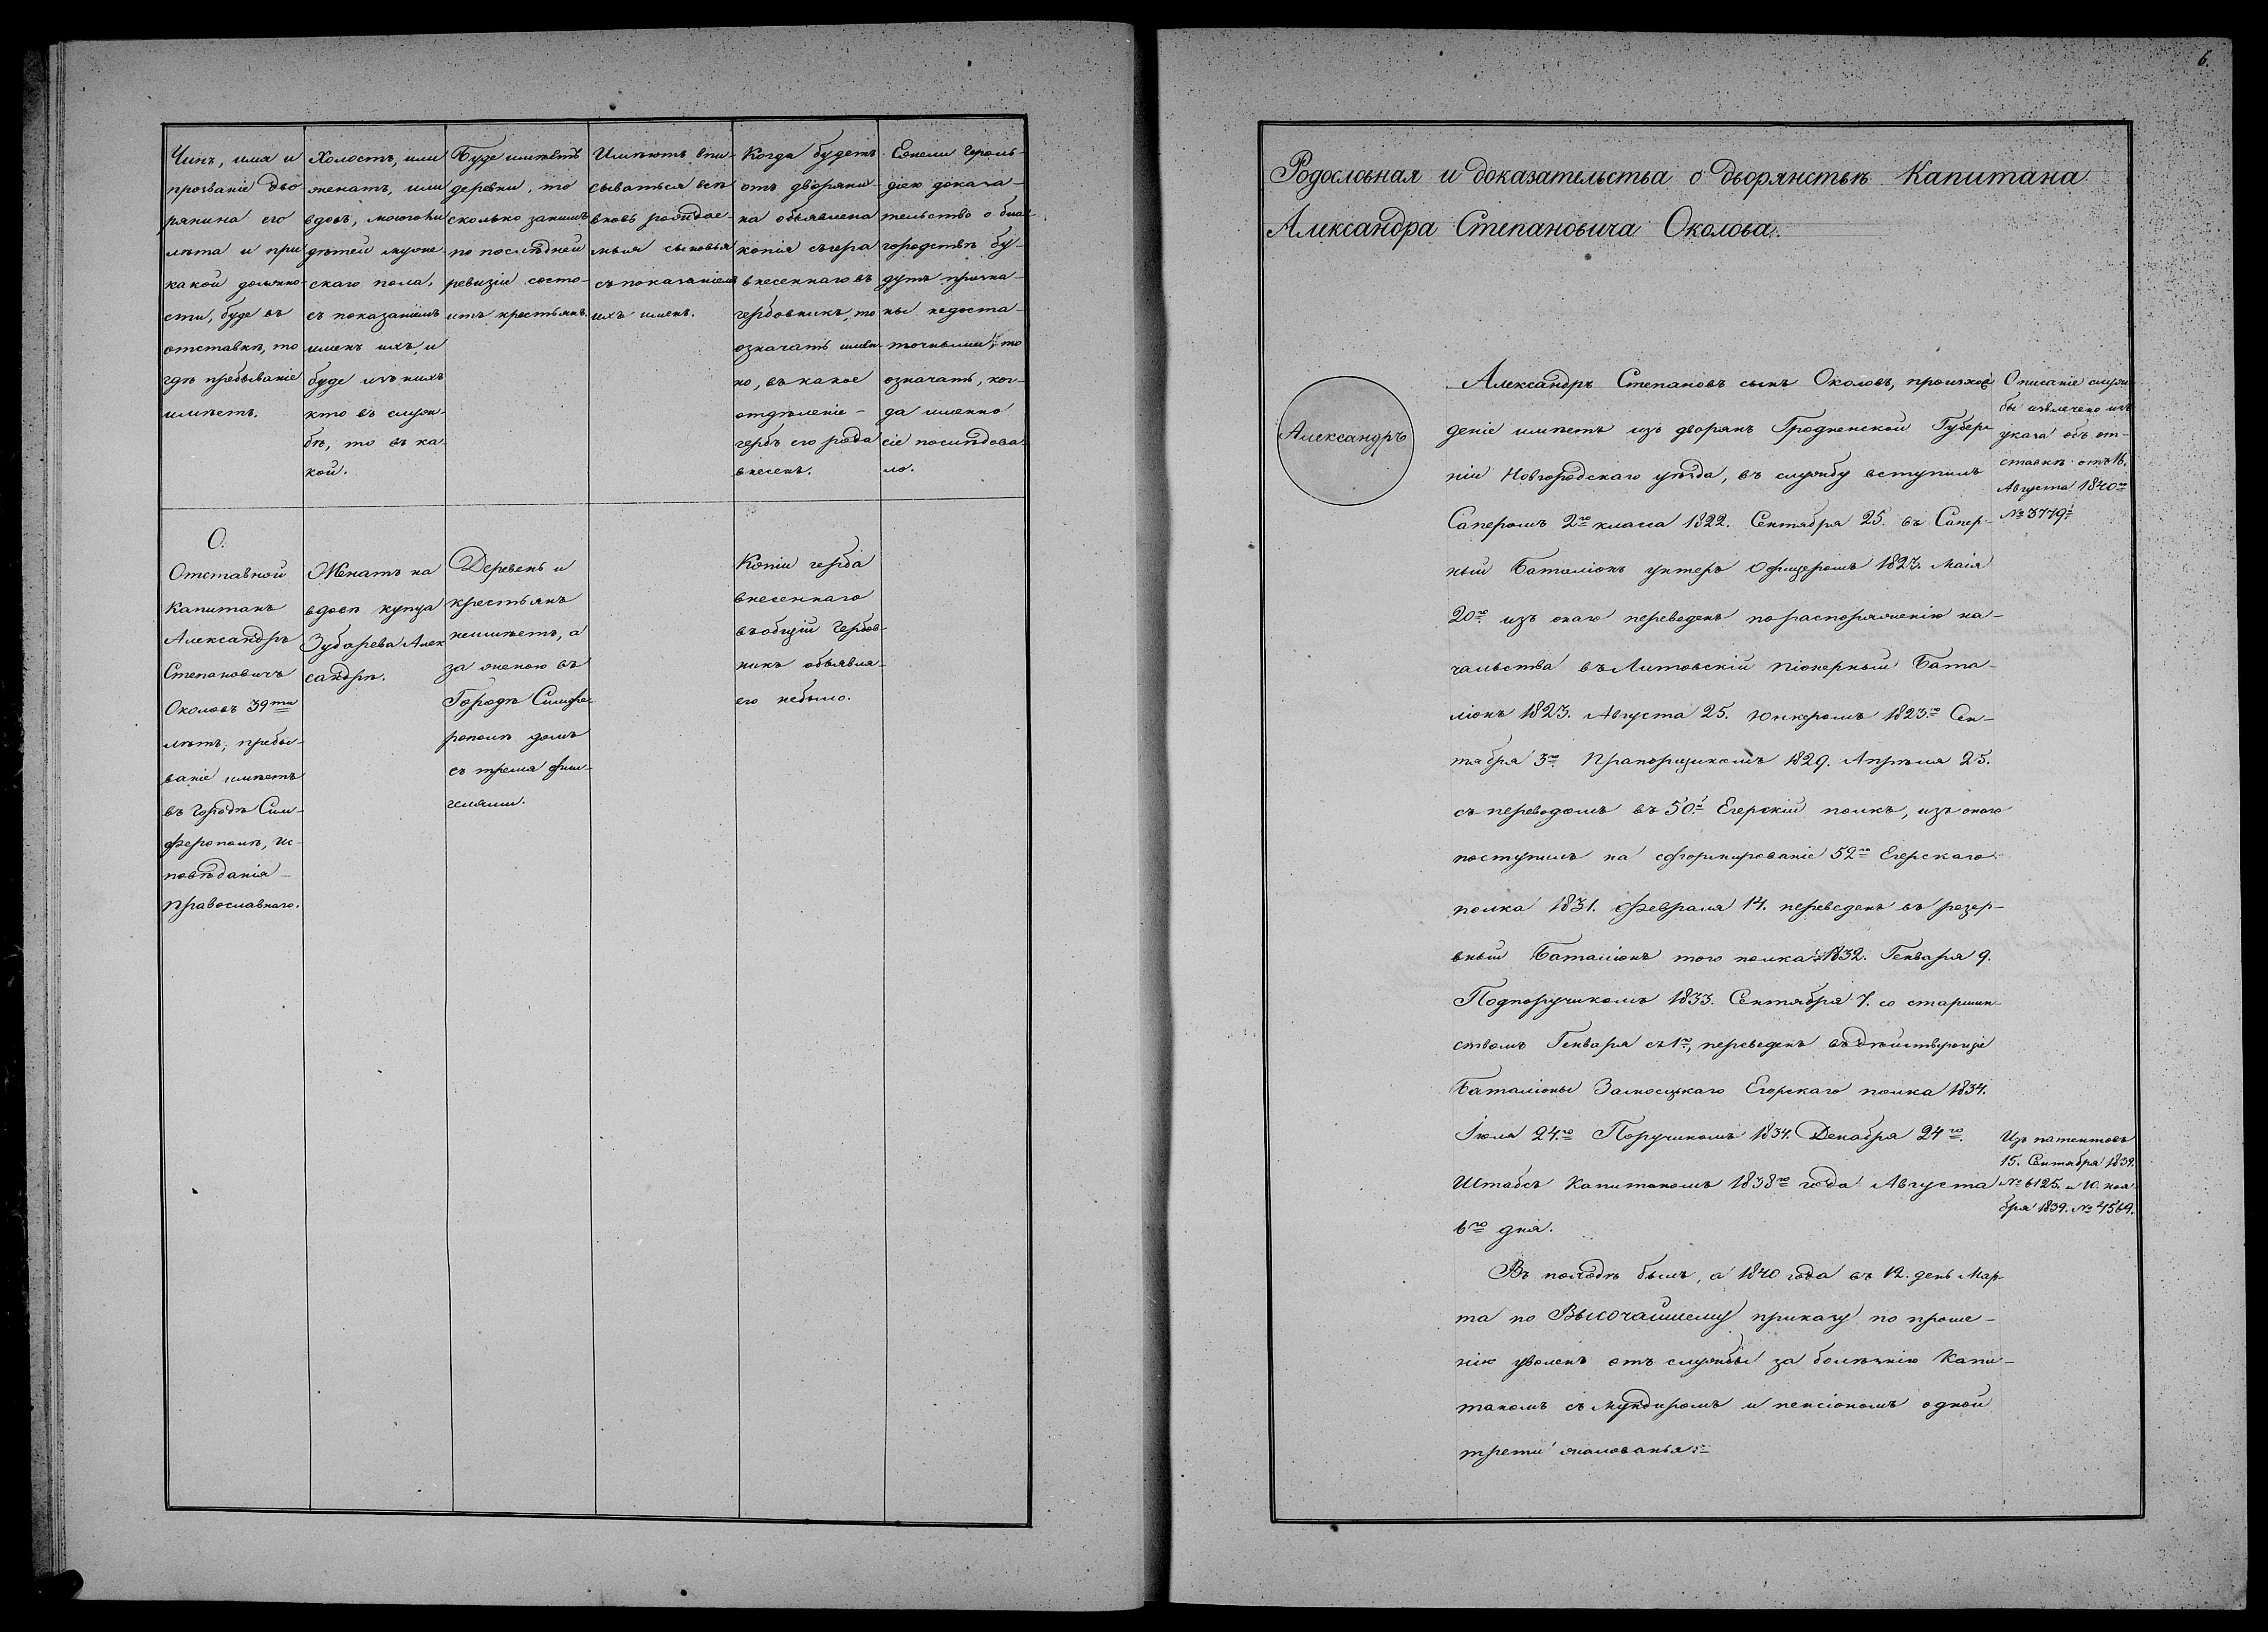 Чинъ, имя и
прозваніе дво
рянина его
лѣта и при
какой должно-
сти, буде въ
отставкѣ, то
гдѣ пребываніе
имѣетъ.
Холостъ, или
женатъ, или
вдовъ, много ли
дѣтей муже-
скаго пола,
съ показаніемъ
именъ ихъ, и
буде изъ нихъ
кто въ служ-
бѣ, то въ ка-
кой.
Буде имѣетъ
деревни, то
сколько за нимъ
по послѣдней
ревизіи состо-
итъ крестьянъ.
Имѣютъ впи-
сываться всѣ
вновь раждае-
мыя сыновья
съ показаніемъ
ихъ именъ.
Когда будетъ
отъ дворяни-
на объявлена
копія съ герба
внесеннаго въ
гербовникъ, то
означать имен-
но, въ какое
отдѣленіе-
гербъ его рода
внесенъ.
Ежели Героль-
діею доказа-
тельство о бла-
городствѣ бу-
дутъ призна-
ны недоста-
точными, то
означать, ког-
да именно
сіе послѣдова
ло.
О.
Отставной
Капитанъ
Александръ
Степановичъ
Околовъ 39ти
лѣтъ, пребы-
ваніе имѣетъ
въ городѣ Сим-
ферополѣ, ис-
повѣданія-
православнаго.
Женатъ на
вдовѣ купца
Зубарева Алек
сандрѣ.
Деревень и
крестьянъ
неимѣетъ, а
за женою въ
Городѣ Симфе-
рополѣ домъ
съ тремя фли-
гелями.
Копіи герба
внесеннаго
въобщій Гербов-
никъ объявля-
его небыло.
6.
Родословная и доказательства о дворянствѣ Капитана
Александра Степановича Околова.
Александръ
Александръ Степановъ сынъ Околовъ, происхож
деніе имѣетъ изъ дворянъ Гродненской Губер-
ніи Новгородскаго уѣзда, въ службу вступилъ
Саперомъ 2го класса 1822. Сентября 25. въ Сапер-
ный Баталіонъ унтеръ офицеромъ 1823. Маія
20го изъ онаго переведенъ пораспоряженію на-
чальства въ Литовскій піонерный Бата-
ліонъ 1823. Августа 25. Юнкеромъ 1823го Сен-
тября 3го Прапорщикомъ 1829. Апрѣля 25.
съ переводомъ въ 50й Егерскій полкъ, изъ онаго
поступилъ на сформированіе 52го Егерскаго
полка 1831. Февраля 14. переведенъ въ резер-
вный Баталіонъ того полка 1832. Генваря 9.
Подпоручикомъ 1833. Сентября 7. со старшин-
ствомъ Генваря съ 1го, переведенъ въдѣйствующіе
Баталіоны Замосцкаго Егерскаго полка 1834.
Іюля 24го Поручикомъ 1834. Декабря 24го.
Штабсъ Капитаномъ 1838го года Августа
6го дня.
Въ походѣ былъ, а 1840 года въ 12. день Мар-
та по Высочайшему приказу по проше-
нію уволенъ отъ службы за болѣзнію Капи-
таномъ съ мундиромъ и пенсіономъ одной
трети жалованья.
Описаніе служ
бы извлечено изъ
указа объ от-
ставкѣ отъ 16.
Августа 1840го
№ 3779.
Изъ патентовъ
15. Сентября 1839.
№ 6125. и 10. ноя
бря 1839. № 4569.